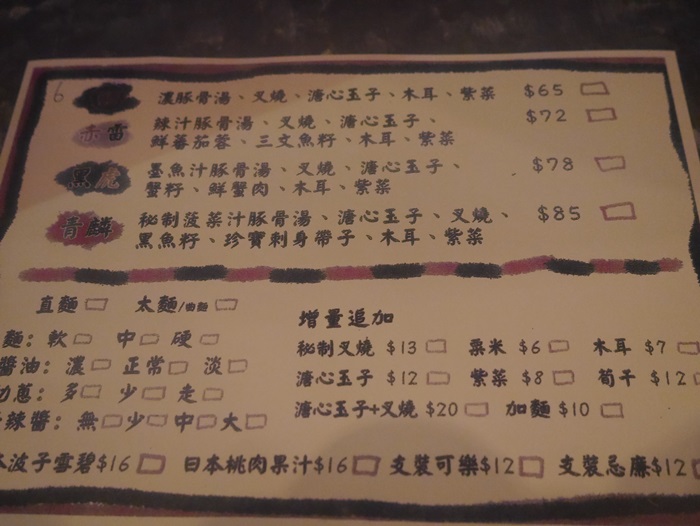 6
濃豚骨湯、叉燒、溏心玉子、木耳、紫菜 $65
赤雷 辣汁豚骨湯、叉燒、溏心玉子、 $72
鮮蕃茄蓉、三文魚籽、木耳、紫菜
黑虎 墨魚汁豚骨湯、叉燒、溏心玉子、 $78
蟹籽、鮮蟹肉、木耳、紫菜
青麟 秘制菠菜汁豚骨湯、溏心玉子、叉燒、 $85
黑魚籽、珍寶刺身帶子、木耳、紫菜
直麵 太麵/曲麵
麵: 軟 中 硬
醬油: 濃 正常 淡
蔥: 多 少 走
辣醬: 無 少 中 大
增量追加
秘制叉燒 $13 粟米 $6 木耳 $7
溏心玉子 $12 紫菜 $8 筍干 $12
溏心玉子+叉燒 $20 加麵 $10
波子雪碧$16 日本桃肉果汁$16 支裝可樂$12 支裝忌廉$12